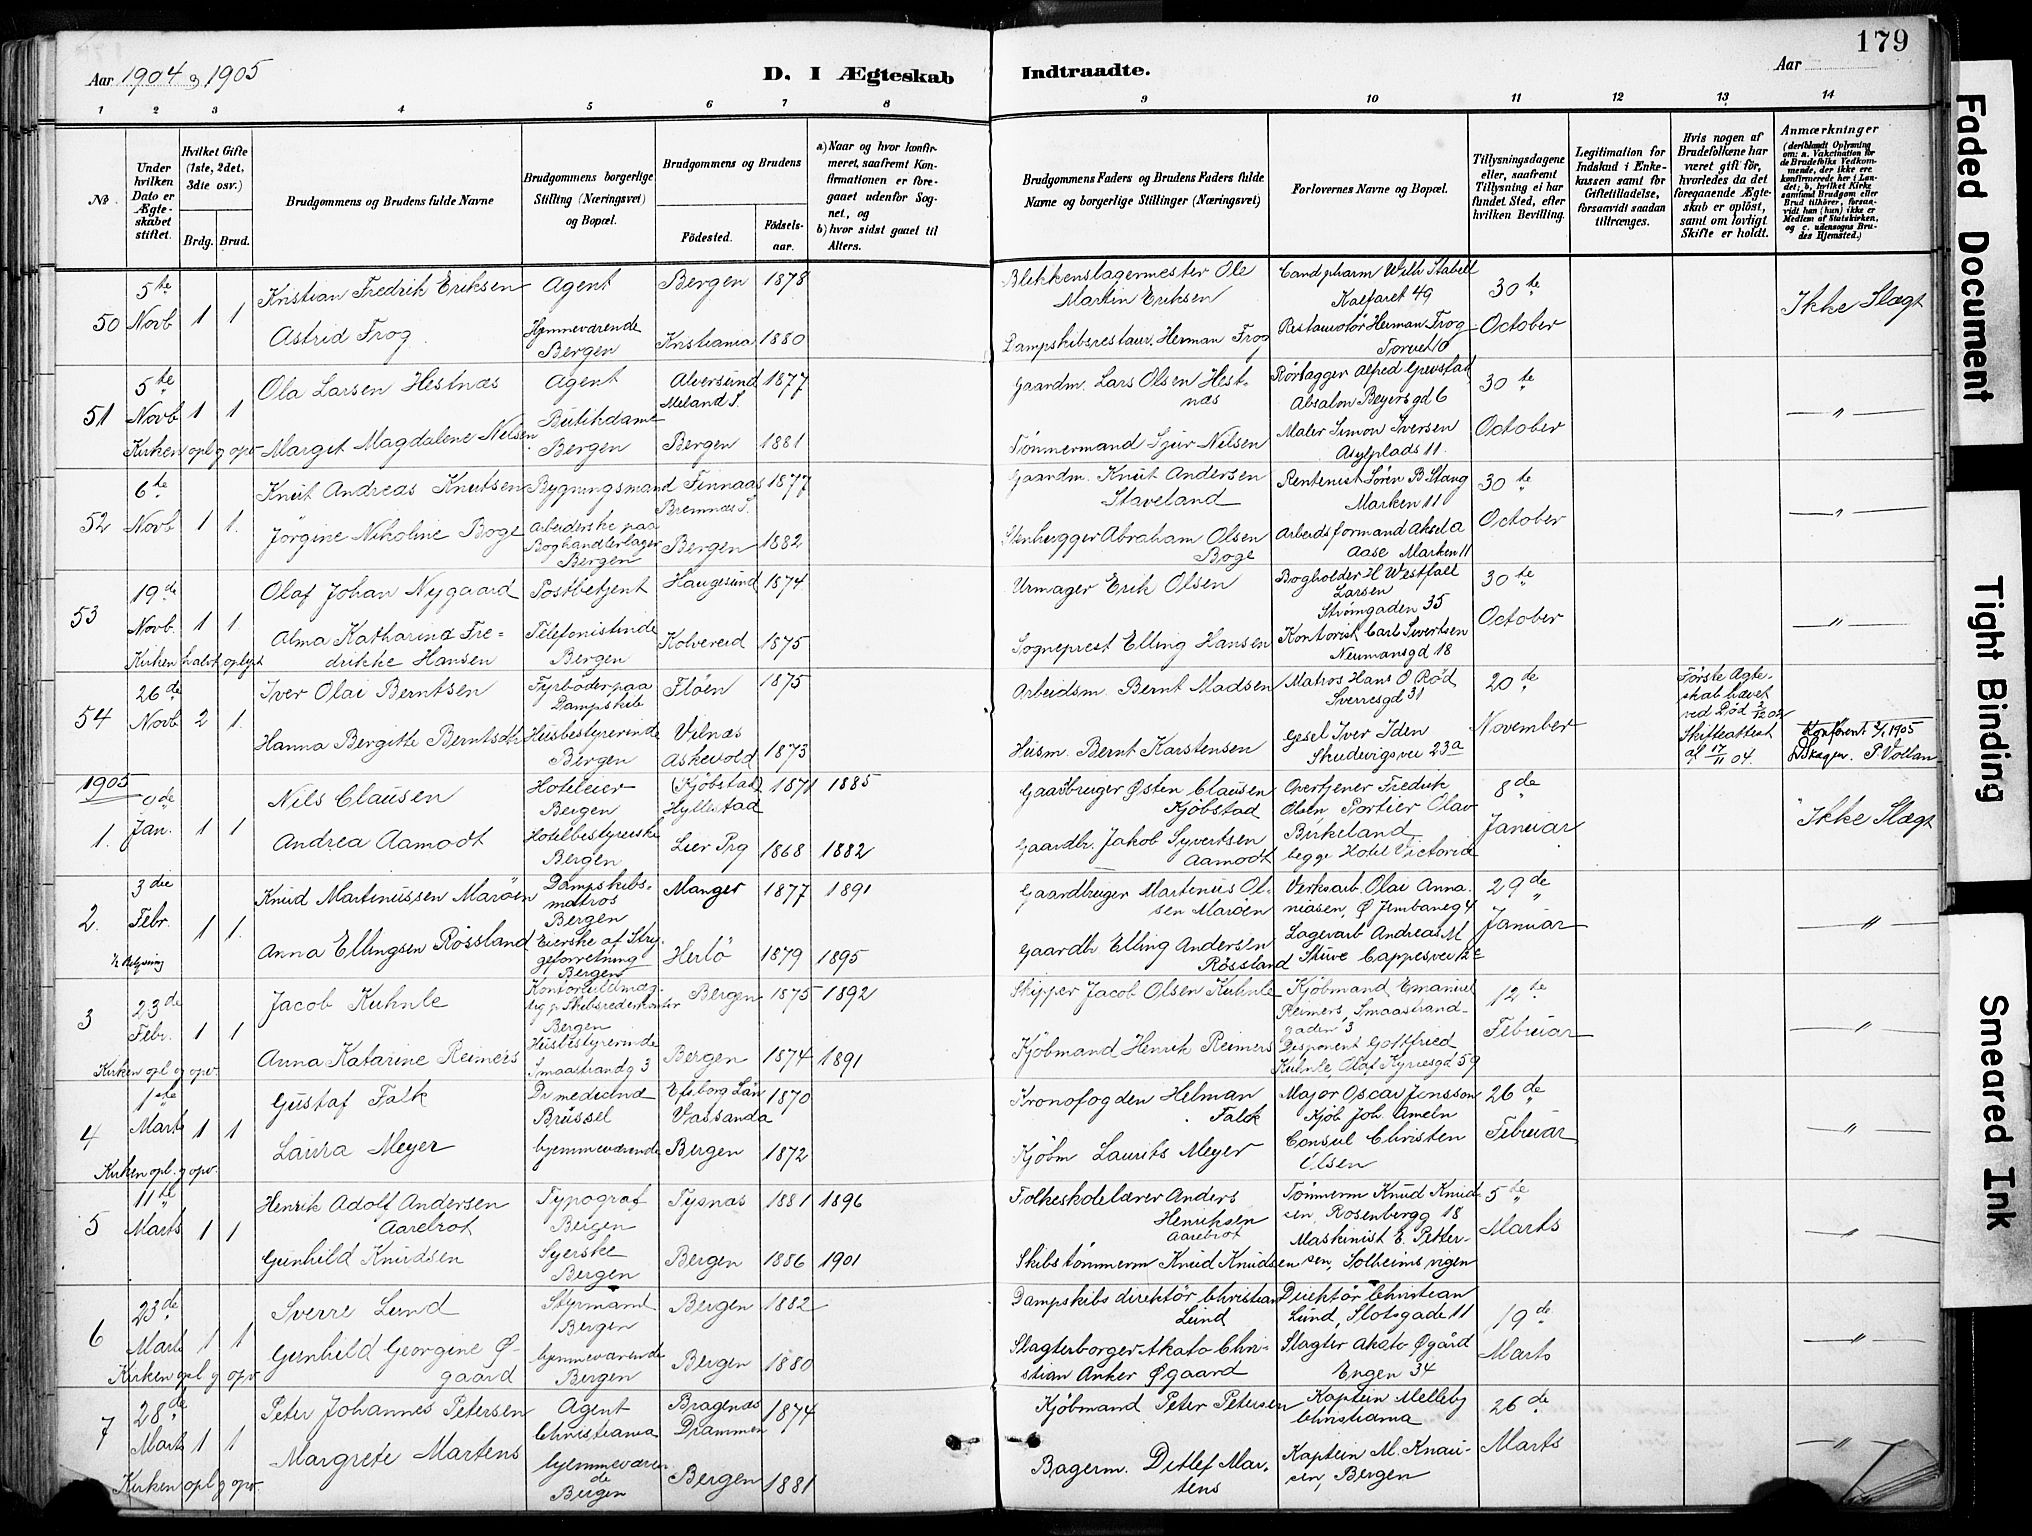 179
Aar 1904 og 1905
D. I Ægteskab Indtraadte.
Aar
1 2 3 4 5 6 7 8 9 10 11 12 13 14
No.
Under hvilken Dato er Ægteskabet stiftet.
Hvilket Gifte (1ste, 2det, 3die osv.)
Brdg. Brud.
Brudgommens og Brudens fulde Navne
Brudgommens borgerlige Stilling (Næringsvei) og Bopæl.
Brudgommens og Brudens
Fødested.
Fødselsaar.
a) Naar og hvor konfirmeret, saafremt Konfirmationen er foregaaet udenfor Sognet, og
b) hvor sidst gaaet til Alters.
Brudgommens Faders og Brudens Faders fulde Navne og borgerlige Stillinger (Næringsvei)
Forlovernes Navne og Bopæl.
Tillysningsdagene eller, saafremt Tillysning ei har fundet Sted, efter hvilken Bevilling.
Legitimation for Indskud i Enkekassen samt for Giftetilladelse, forsaavidt saadan tiltrænges.
Hvis nogen af Brudefolkene har været gift før, hvorledes da det foregaaende Ægteskab er opløst, samt om lovligt Skifte er holdt.
Anmærkninger (deriblandt Oplysning om: a. Vakcination for de Brudefolks Vedkommende, der ikke ere konfirmerede her i Landet; b. hvilket Kirkesamfund Brudgom eller Brud tilhører, forsaavidt han (hun) ikke er Medlem af Statskirken, og c. udensogns Brudes Hjemsted.)
50 5te Novb 1 1
Kristian Fredrik Eriksen Agent Bergen 1878
Blikkenslagermester Ole Martin Eriksen
Cand pharm Wilh Stabell Kalfaret 49
30te October
Ikke Slægt
Astrid Frog Hjemmeværende Bergen Kristiania 1880
Dampskibsrestaur. Herman Frog
Restauratør Herman Frog Torvet 10
51 5te Novb 1 1
Kirken opl og opv
Ola Larsen Hestnæs Agent Alversund Meland S. 1877
Gaardm. Lars Olsen Hestnæs
Rørlægger Alfred Grevstad Absalon Beyersgd 6
30te October
"
Margit Magdalene Nelsen Butikdame Bergen Bergen 1881
Tømmermand Sjur Nelsen
Maler Simon Iversen Asylplads 11.
52 6te Novb 1 1.
Knut Andreas Knutsen Bygningsmand Finnaas Bremnæs S. 1877
Gaardm. Knut Andersen Staveland
Rentenist Søren B Stang Marken 11
30te October
"
Jørgine Nikoline Boge Arbeiderske paa Boghandlerlager Bergen Bergen 1882
Stenhugger Abraham Olsen Boge
Arbeidsformand Aksel A Aase Marken 11
53 19de Novb. 1 1.
Kirken halvt oplyst
Olaf Johan Nygaard Postbetjent Haugesund 1874
Urmager Erik Olsen
Bogholder H Westfall Larsen Strømgaden 35
30te October
"
Alma Katharina Fredrikke Hansen Telefonistinde Bergen Kolvereid 1875
Sogneprest Elling Hansen
Kontorist Carl Sivertsen Neumansgd 18
54 26de Novb 2 1.
Iver Olai Berntsen Fyrbøder paa Dampskib Fløen 1875
Arbeidsm. Bernt Madsen
Matros Hans O Rød Sverresgd 31
20de November
Første Ægteskab hævet ved Død 3/12 02 Skifteattest af 17/11 04.
Konferent 2/1 1905 P. Vollan
Hanna Bergitte Berntsdtr Husbestyrerinde Bergen Vilnæs Askevold 1873
Husm. Bernt Karstensen
Gesel Iver Iden Skudevigsvei 23a
1905
1. Jan. 1 1
Nils Clausen Hoteleier Bergen (Kjøbstad) Hyllestad 1871 1885
Gaardbruger Østen Clausen Kjøbstad
Overtjener Fredrik Olsen, Portier Olav Birkeland begge Hotel Victoria
8de Januar
Ikke Slægt
Andrea Aamodt Hotelbestyrerske Bergen Lier Prg 1868 1882
Gaardbr. Jakob Syvertsen Aamodt
2. 3die Febr. 1 1.
Knud Martinussen Marøen Dampskibsmatros Bergen Manger 1877 1891
Gaardbruger Martinus Olsen Marøen
Verksarb. Olai Annaniasen, Ø Jernbaneg 4
29de Januar
"
Anna Ellingsen Røssland Eierske af Strygeforretning Bergen Herlø 1879 1895
Gaardbr Elling Andersen Røssland
Lagerarb Andreas M Stuve Cappesvei 12c
3 23de Febr. 1 1
Kirken opl og opv.
Jacob Kuhnle Bergen Bergen 1875 1892
Skipper Jacob Olsen Kuhnle
Kjøbmand Emanuel Reimers, Smaastrandgaden 3
12te Februar
"
Anna Katarine Reimers Husbestyrerinde Smaastrandg 3 Bergen 1874 1891
Kjøbmand Henrik Reimers
Disponent Gottfried Kuhnle, Olaf Kyrresgd 59
4 1ste Marts 1 1
Kirken opl. og opv.
Gustaf Falk Dr medicinæ Brüssel Elfsborg Län Vassanda 1870
Kronofogden Helman Falck
Major Oscar Jonsson Kjøb Joh. Ameln
26de Februar
"
Laura Meyer hjemmeværende Bergen 1872
Kjøbm Laurits Meyer
Consul Christen Olsen
5 11te Marts 1 1
Henrik Adolf Andersen Aarebrot Typograf Bergen Tysnæs 1881 1896
Folkeskolelærer Anders Henriksen Aarebrot
Tømmerm Knud Knudsen, Rosenbergg 18
5te Marts
"
Gunhild Knudsen Syerske Bergen Bergen 1886 1901
Skibstømmerm Knud Knudsen
Maskinist E. Pettersen, Solheimsvigen
6 23de Marts 1 1
Kirken opl og opv
Sverre Lund Styrmand Bergen Bergen 1882
Dampskibsdirektør Christian Lund
Direktør Christian Lund, Slotsgade 11
19de Marts
"
Gunhild Georgine Øgaard hjemmeværende Bergen Bergen 1880
Slagterborger Akato Christian Anker Øgaard
Slagter Akato Øgård Engen 34
7 28de Marts 1 1
Kirken opl og opv.
Peter Johannes Petersen Agent Christiania Bragenæs Drammen 1874
Kjøbmand Peter Petersen
Kaptein Melleby Christiania
26de Marts
"
Margrete Martens hjemmeværende Bergen Bergen 1881
Bagerm. Detlef Martens
Kaptein M. Knausen, Bergen
Faded Document
Tight Binding
Smeared Ink